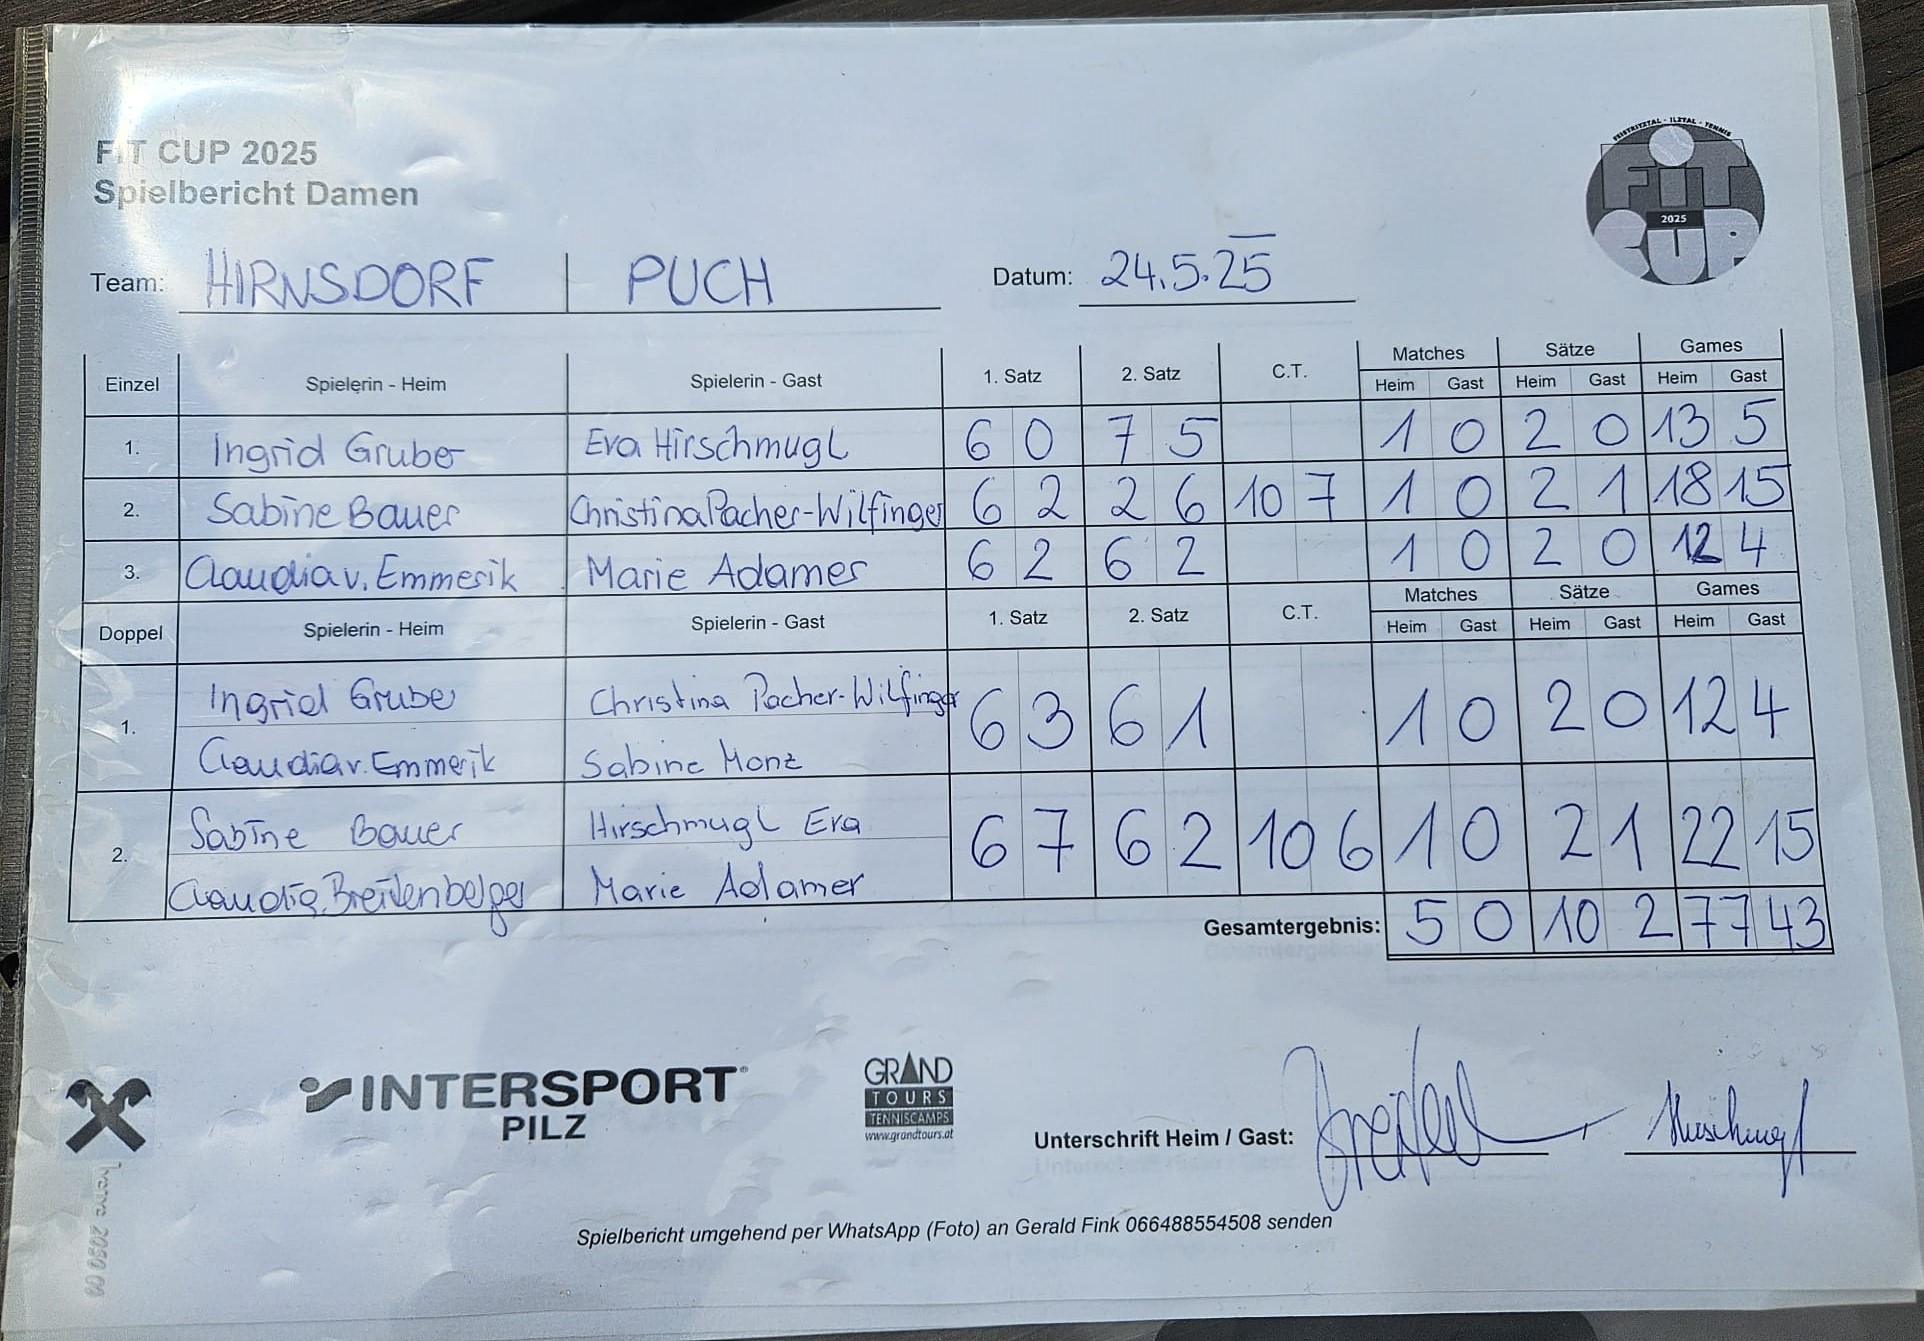 FIT CUP 2025
Spielbericht Damen
FEISTRITZTAL - ILZTAL - TENNIS
FiT
2025
CUP
Team: HIRNSDORF PUCH Datum: 24.5.25
Matches Sätze Games
Einzel Spielerin - Heim Spielerin - Gast 1. Satz 2. Satz C.T. Heim Gast Heim Gast Heim Gast
1. Ingrid Gruber Eva Hirschmugl 6 0 7 5 1 0 2 0 13 5
2. Sabine Bauer Christina Pacher-Wilfinger 6 2 2 6 10 7 1 0 2 1 18 15
3. Claudia v. Emmerik Marie Adamer 6 2 6 2 1 0 2 0 12 4
Matches Sätze Games
Doppel Spielerin - Heim Spielerin - Gast 1. Satz 2. Satz C.T. Heim Gast Heim Gast Heim Gast
Ingrid Gruber Christina Pacher-Wilfinger
1. 6 3 6 1 1 0 2 0 12 4
Claudia v. Emmerik Sabine Monz
Sabine Bauer Hirschmugl Eva
2. 6 7 6 2 10 6 1 0 2 1 22 15
Claudia Breitenberger Marie Adamer
Gesamtergebnis: 5 0 10 2 77 43
INTERSPORT
PILZ
GRAND
TOURS
TENNISCAMPS
www.grandtours.at
Unterschrift Heim / Gast: Hirschmugl
Spielbericht umgehend per WhatsApp (Foto) an Gerald Fink 066488554508 senden